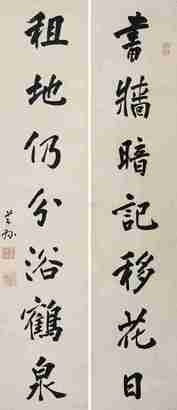 書牆暗記移花日
租地仍分浴鶴泉